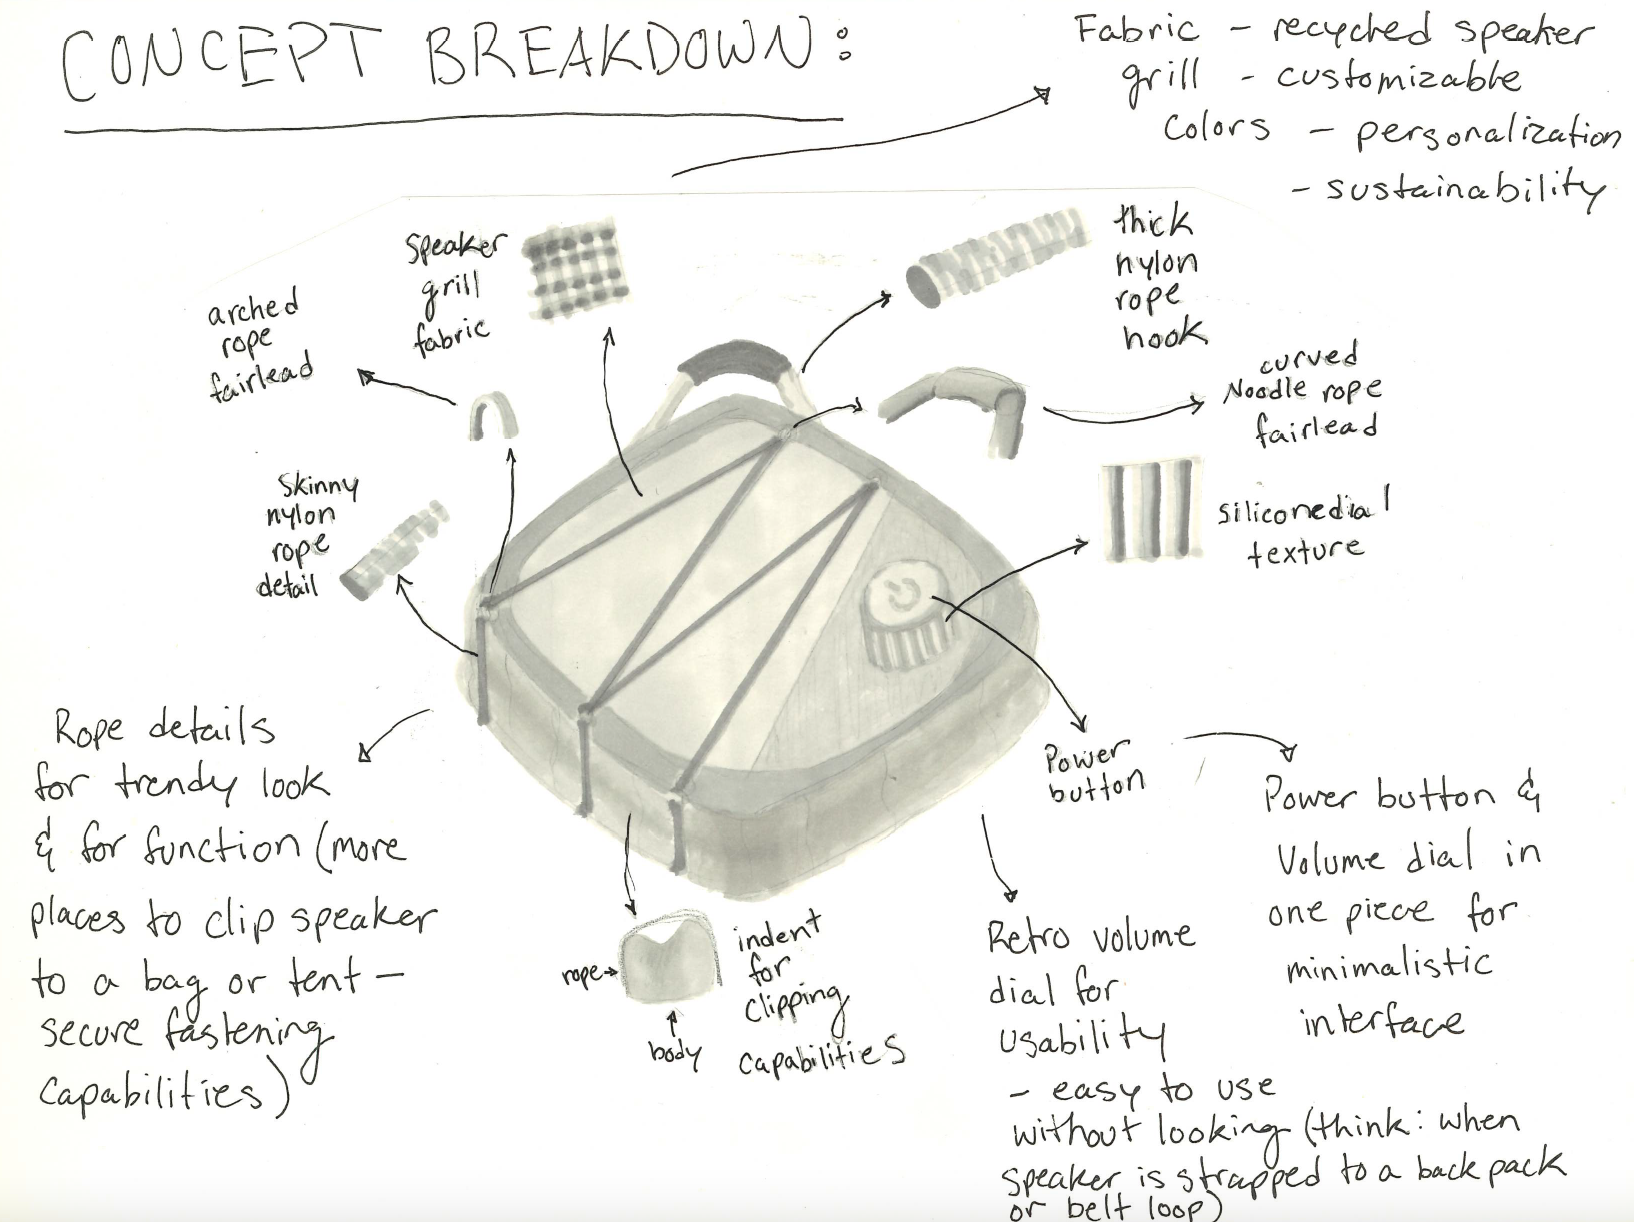 CONCEPT BREAKDOWN:
Fabric - recycled speaker
grill - customizable
Colors - personalization
- sustainability
Speaker
grill
fabric
thick
nylon
rope
hook
arched
rope
fairlead
curved
Noodle rope
fairlead
Skinny
nylon
rope
detail
siliconedial
texture
Rope details
for trendy look
& for function (more
places to clip speaker
to a bag or tent -
secure fastening
capabilities)
Power
button
Power button &
Volume dial in
one piece for
minimalistic
interface
rope
body
indent
for
clipping
capabilities
Retro volume
dial for
usability
- easy to use
without looking (think: when
speaker is strapped to a back pack
or belt loop)